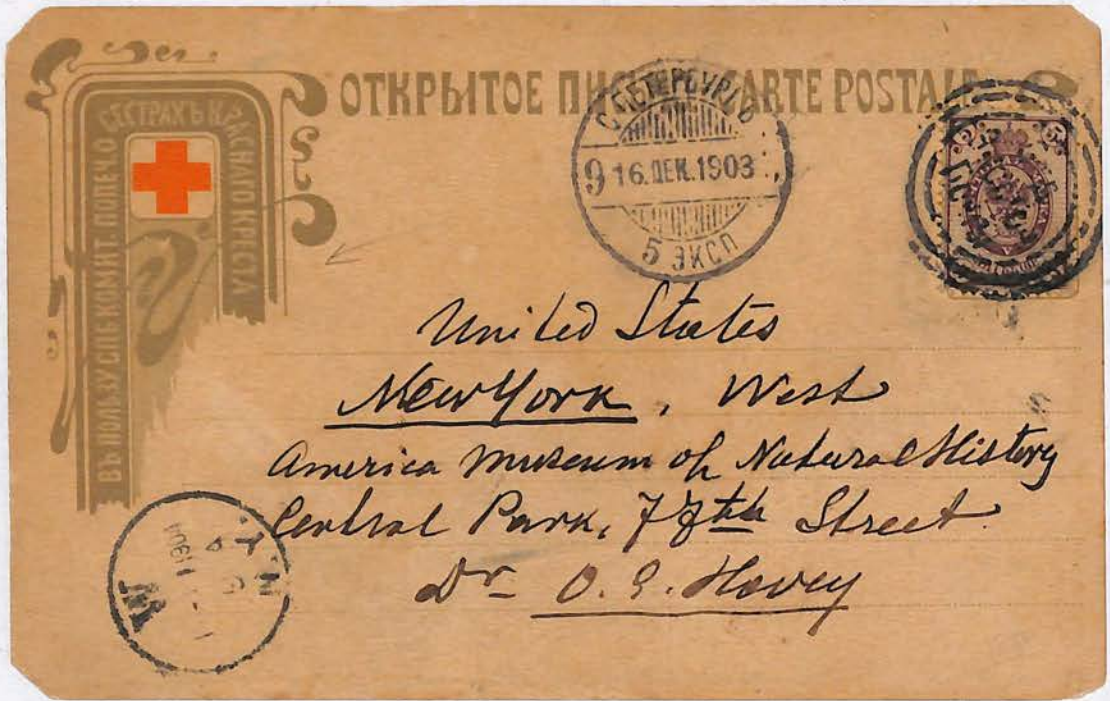 ОТКРЫТОЕ CARTE POSTALE
ВЪ ПОЛЬЗУ СПБ КОМИТ. ПОПЕЧ. О СЕСТРАХЪ КРАСНАГО КРЕСТА
С.ПЕТЕРБУРГЪ
9 16.ДЕК.1903
5 ЭКСП
5 5
United States
New York, West
America Museum of Natural History
Central Park, 77th Street
Dr O. E. Hovey
N.Y.
1904